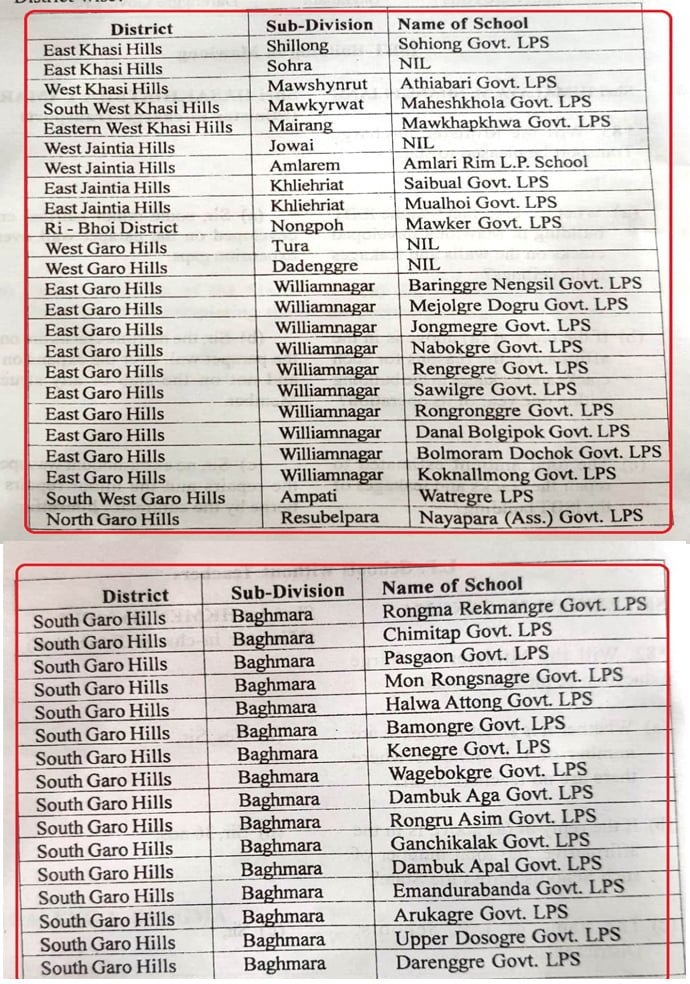 District Sub-Division Name of School
East Khasi Hills Shillong Sohiong Govt. LPS
East Khasi Hills Sohra NIL
West Khasi Hills Mawshynrut Athiabari Govt. LPS
South West Khasi Hills Mawkyrwat Maheshkhola Govt. LPS
Eastern West Khasi Hills Mairang Mawkhapkhwa Govt. LPS
West Jaintia Hills Jowai NIL
West Jaintia Hills Amlarem Amlari Rim L.P. School
East Jaintia Hills Khliehriat Saibual Govt. LPS
East Jaintia Hills Khliehriat Mualhoi Govt. LPS
Ri - Bhoi District Nongpoh Mawker Govt. LPS
West Garo Hills Tura NIL
West Garo Hills Dadenggre NIL
East Garo Hills Williamnagar Baringgre Nengsil Govt. LPS
East Garo Hills Williamnagar Mejolgre Dogru Govt. LPS
East Garo Hills Williamnagar Jongmegre Govt. LPS
East Garo Hills Williamnagar Nabokgre Govt. LPS
East Garo Hills Williamnagar Rengregre Govt. LPS
East Garo Hills Williamnagar Sawilgre Govt. LPS
East Garo Hills Williamnagar Rongronggre Govt. LPS
East Garo Hills Williamnagar Danal Bolgipok Govt. LPS
East Garo Hills Williamnagar Bolmoram Dochok Govt. LPS
East Garo Hills Williamnagar Koknallmong Govt. LPS
South West Garo Hills Ampati Watregre LPS
North Garo Hills Resubelpara Nayapara (Ass.) Govt. LPS
District Sub-Division Name of School
South Garo Hills Baghmara Rongma Rekmangre Govt. LPS
South Garo Hills Baghmara Chimitap Govt. LPS
South Garo Hills Baghmara Pasgaon Govt. LPS
South Garo Hills Baghmara Mon Rongsnagre Govt. LPS
South Garo Hills Baghmara Halwa Attong Govt. LPS
South Garo Hills Baghmara Bamongre Govt. LPS
South Garo Hills Baghmara Kenegre Govt. LPS
South Garo Hills Baghmara Wagebokgre Govt. LPS
South Garo Hills Baghmara Dambuk Aga Govt. LPS
South Garo Hills Baghmara Rongru Asim Govt. LPS
South Garo Hills Baghmara Ganchikalak Govt. LPS
South Garo Hills Baghmara Dambuk Apal Govt. LPS
South Garo Hills Baghmara Emandurabanda Govt. LPS
South Garo Hills Baghmara Arukagre Govt. LPS
South Garo Hills Baghmara Upper Dosogre Govt. LPS
South Garo Hills Baghmara Darenggre Govt. LPS